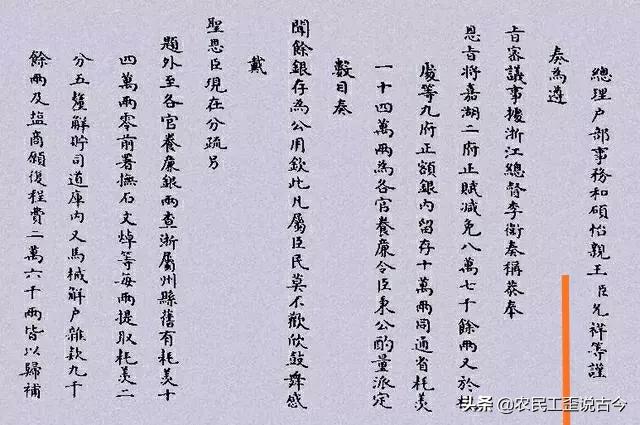 總理户部事務和碩怡親王臣允祥等謹
奏為遵
旨審議事據浙江總督李衛奏稱恭奉
恩旨將嘉湖二府正賦減免八萬七千餘兩又於
處等九府正額銀内留存十萬兩同通省耗羨
一十四萬兩為各官養廉令臣秉公酌量派定
數目奏
聞餘銀存為公用欽此凡屬臣民莫不歡欣鼓舞感
戴
聖恩臣現在分疏另
題外至各官養廉銀兩查浙屬州縣舊有耗羨十
四萬兩零前署撫石文焯等每兩提取耗羨二
分五釐解貯司道庫内又馬械解户雜款九千
餘兩及塩商願復程費二萬六千兩皆以歸補
头条 @农民工歪说古今